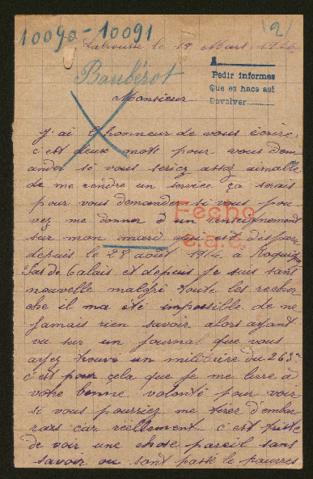 10090 - 10091
(2)
Labourse le 19 Mars
Baubérot
A
Pedir informes
Que ex hace aui
Devolver
Monsieur
J'ai l'honneur de vous écrire
c'est deux mots pour vous dem
ander si vous seriez assez aimable
de me rendre un service ça serais
pour vous demander si vous pou
vez me donner d'un renseignement
sur mon mari qui est disparu
depuis le 28 août 1914 à
Pas de Calais et depuis je suis sans
nouvelle malgré toute les recher
che il ma été impossible de ne
jamais rien savoir alors ayant
vu sur un journal que vous
ayez trouvé un militaire du 263e
c'est pour cela que je me livre à
votre bonne volonté pour voir
si vous pourriez me tirer d'embar
ras car réellement c'est triste
de voir une chose pareil sans
savoir ou sont passé le pauvres
Fecho